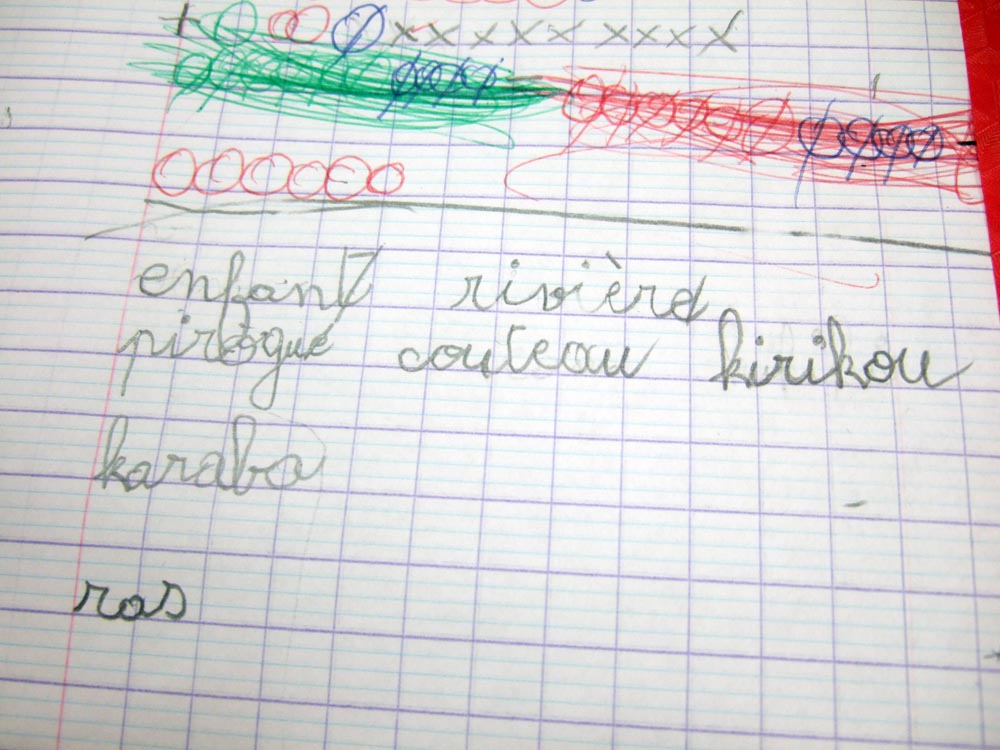 enfant rivière
pirogue couteau kirikou
karaba
ras